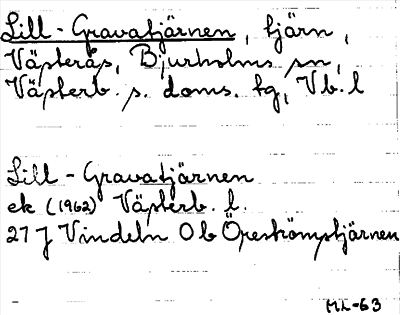 Lill-Gravatjärnen, tjärn,
Västerås, Bjurholms sn,
Västerb. s. doms. tg, Vb. l
Lill-Gravatjärnen
ek (1962) Västerb. l.
21 J Vindeln 0 b Öreströmstjärnen
ML-63